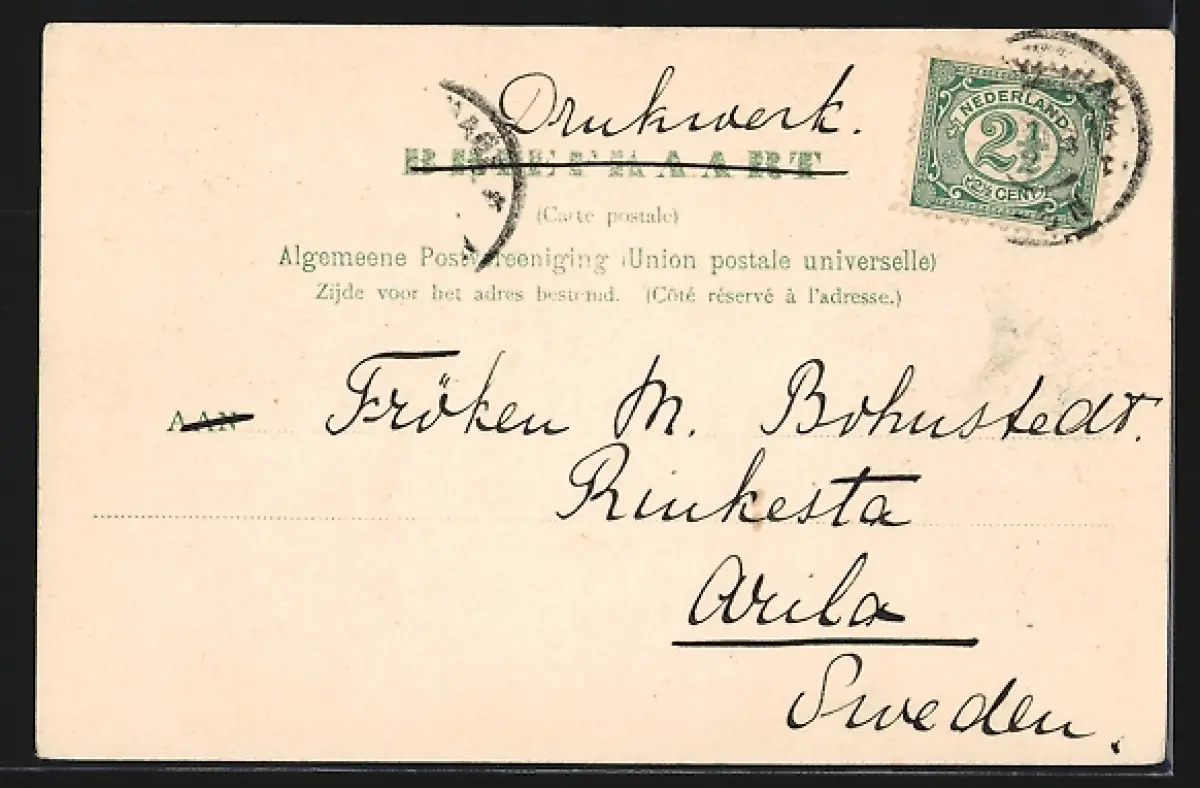 Drukwerk.
BRIEFKAART
(Carte postale)
Algemeene Postvereeniging (Union postale universelle)
Zijde voor het adres bestemd. (Côté réservé à l'adresse.)
NEDERLAND
2½
2½ CENT
AAN Fröken M. Bohnstedt.
Rinkesta
Ärila
Sweden.